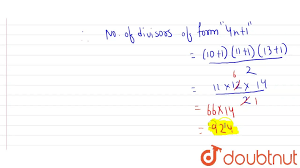 ∴ No. of divisors of form "4n+1"
= (10+1)(11+1)(13+1) / 2
= 11 × 12 × 14 / 2
6
1
= 66 × 14
= 924
doubtnut